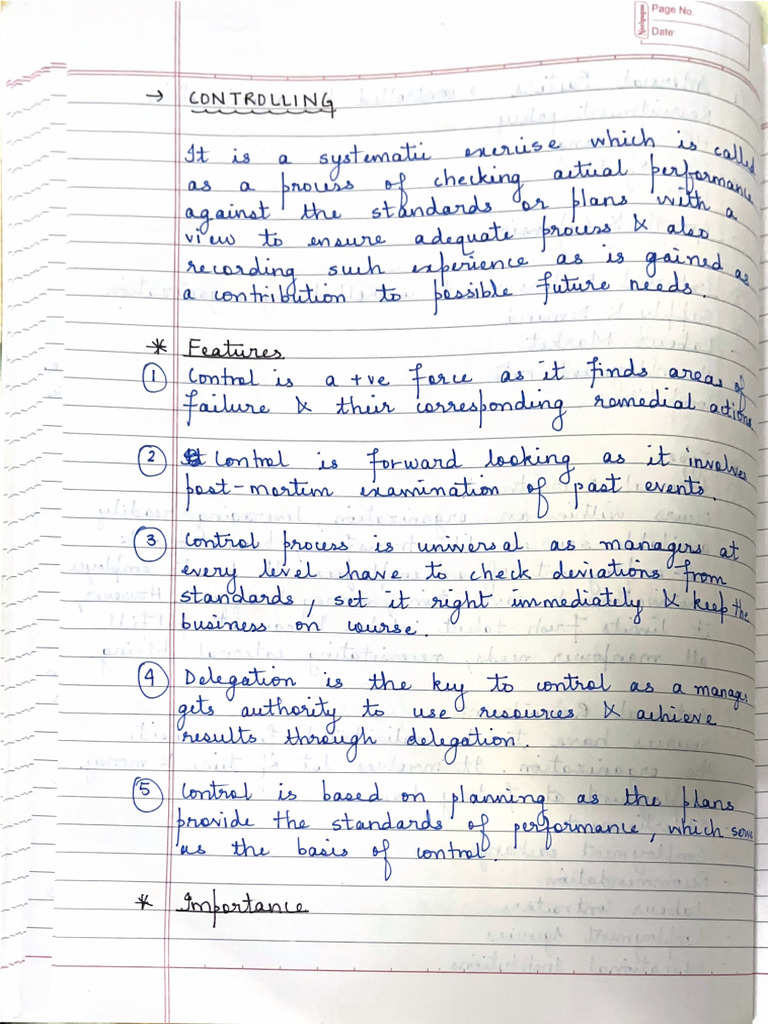 Page No.
Date:
→ CONTROLLING
It is a systematic exercise which is called
as a process of checking actual performance
against the standards or plans with a
view to ensure adequate process & also
recording such experience as is gained as
a contribution to possible future needs.
* Features
1 Control is a +ve force as it finds areas of
failure & their corresponding remedial actions.
2 Control is forward looking as it involves
post-mortim examination of past events.
3 Control process is universal as managers at
every level have to check deviations from
standards, set it right immediately & keep the
business on course.
4 Delegation is the key to control as a manager
gets authority to use resources & achieve
results through delegation.
5 Control is based on planning as the plans
provide the standards of performance, which
as the basis of control.
* Importance